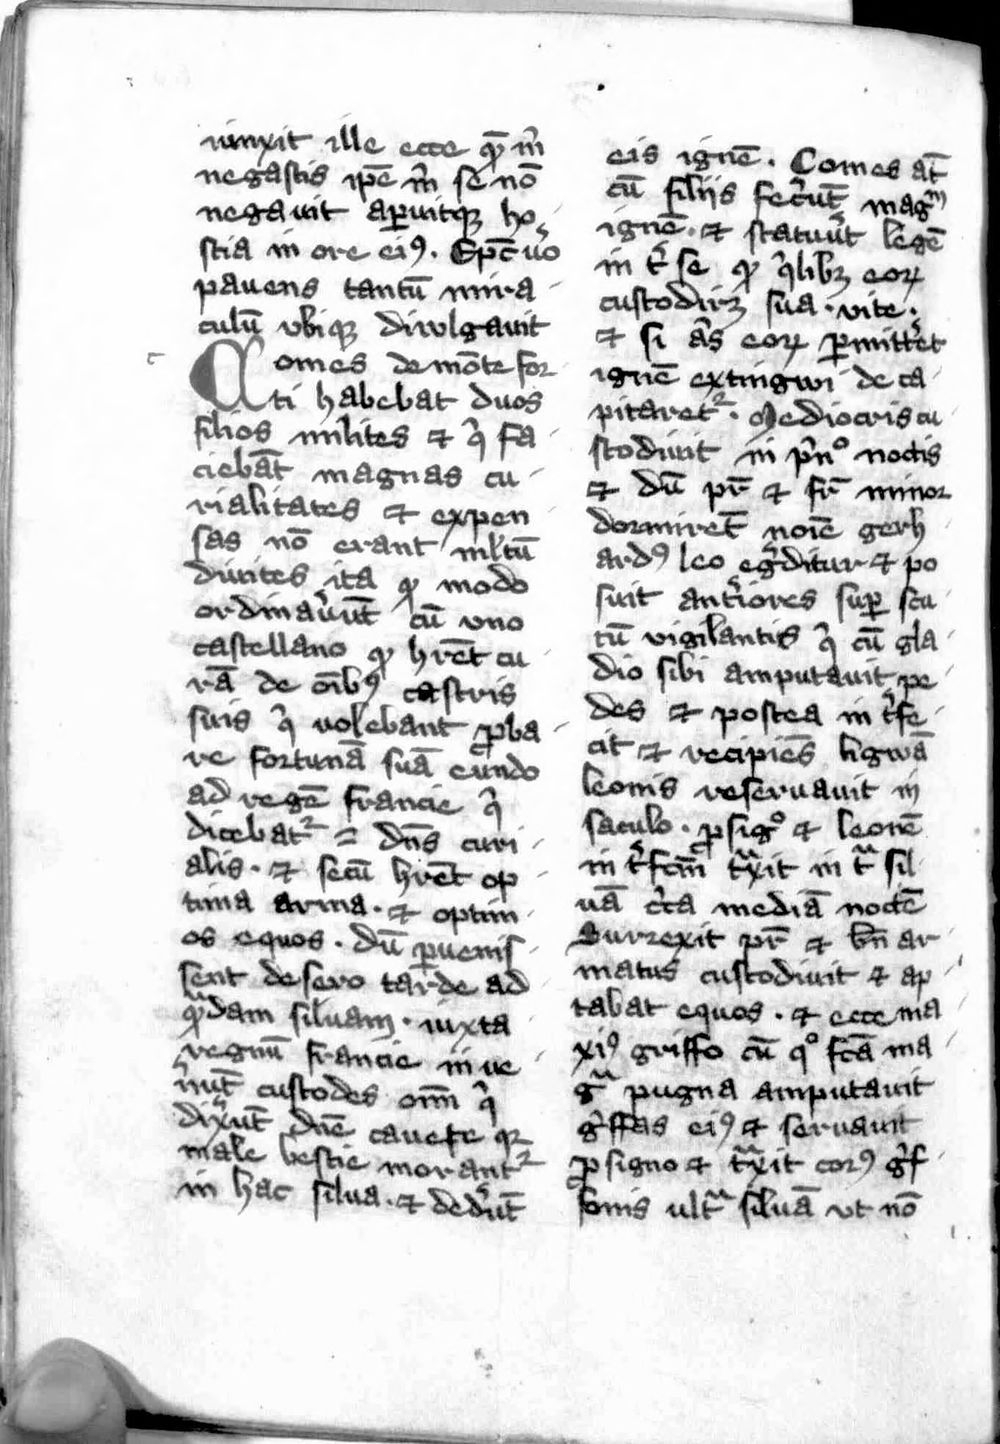 iunxit ille ecce qꝫ m̅
negastis ip̅e m̅ se no̅
negauit ap̲uitqꝫ ho
stia in ore ei⁹. Ep̅c uo̅
pauens tantu̅ mira
culu̅ vbiqꝫ diuulgauit
c
Comes de mo̅te for
ti habebat duos
filios milites et qͥ fa
cieba̅t magnas cu
rialitates et expen
sas no̅ erant ml̅tu̅
diuites ita qꝫ modo
ordinaueru̅t cu̅ vno
castellano qꝫ hre̅t cu
ra̅ de o̅ib⁹ castris
suis qͥ volebant ꝓba
re fortuna̅ sua̅ eundo
ad rege̅ francie qͥ
dicebatᷣ = dn̅s curi
alis. et secu̅ hre̅t op
tima arma. et optim
os equos. du̅ ꝑuenis
sent de sero tarde ad
qᷓdam siluam. iuxta
regnu̅ francie inue
neru̅t custodes o̅m qͥ
dixeru̅t dn̅e cauete qꝛ
male bestie morantᷣ
in hac silua. et dederu̅t
eis igne̅. Comes at̅
cu̅ filiis feceru̅t mag̅m
igne̅. et statueru̅t lege̅
int̉ se qꝫ qͥlibꝫ eoꝝ
custodiꝫ sua vice.
et si a̅s eoꝝ ꝑmitteret
igne̅ extingwi deca
pitaretᷣ. Mediocris cu
stodiuit in pͥnº noctis
et du̅ pr̅ et fr̅ minor
dormire̅t no̅ie gerh
ard⁹ leo egͬditur et po
suit ant̉iores suꝑ scu
tu̅ vigilantis qͥ cu̅ gla
dio sibi amputauit pe
des et postea int̉fe
cit et recipie̅s li̅gwa̅
leonis reseruauit in
saculo. ꝓ sigº et leone̅
int̉fc̅m tᷓxit in tᷓ sil
ua̅ ct̉a media̅ nocte̅
Surrexit pr̅ et bn̅ ar
matus custodiuit et ap
tabat equos. et ecce ma
xi⁹ griffo cu̅ qº fc̅a ma
gᷓ pugna amputauit
gͥffas ei⁹ et seruauit
ꝓ signo et tᷓxit corp⁹ gͥf
fonis ultᷓ silua̅ vt no̅